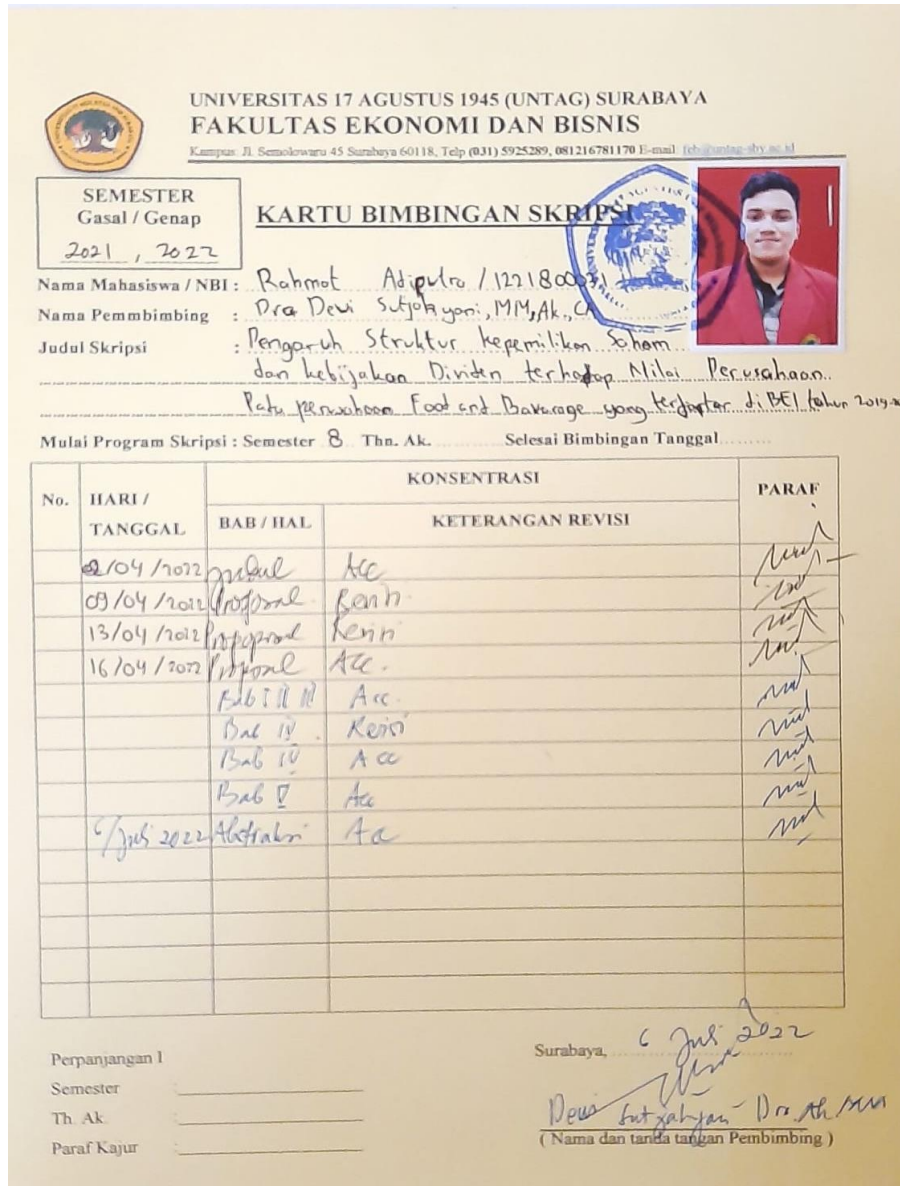 UNIVERSITAS 17 AGUSTUS 1945 (UNTAG) SURABAYA
FAKULTAS EKONOMI DAN BISNIS
Kampus: Jl. Semolowaru 45 Surabaya 60118, Telp (031) 5925289, 081216781170 E-mail: feb@untag-sby.ac.id
SEMESTER
Gasal / Genap
2021 , 2022
KARTU BIMBINGAN SKRIPSI
Nama Mahasiswa / NBI : Rahmat Adiputra / 12218000
Nama Pemmbimbing : Dra Dewi Sutjahyani, MM, Ak., CA
Judul Skripsi : Pengaruh Struktur kepemilikan Saham
dan kebijakan Dividen terhadap Nilai Perusahaan
Pada perusahaan Food and Bavarage yang terdaftar di BEI tahun 2019-
Mulai Program Skripsi : Semester 8 Thn. Ak. Selesai Bimbingan Tanggal
No. HARI / TANGGAL KONSENTRASI PARAF
BAB / HAL KETERANGAN REVISI
02/04/2022 Judul Acc
09/04/2022 Proposal Revisi
13/04/2022 Propoposal Revisi
16/04/2022 Proposal Acc.
Bab I II III Acc.
Bab IV Revisi
Bab IV Acc
Bab V Acc
6/Juli 2022 Abstraksi Acc
Perpanjangan I
Semester :
Th. Ak :
Paraf Kajur :
Surabaya, 6 Juli 2022
Dewi Sutjahyani Dra. Ak MM
( Nama dan tanda tangan Pembimbing )